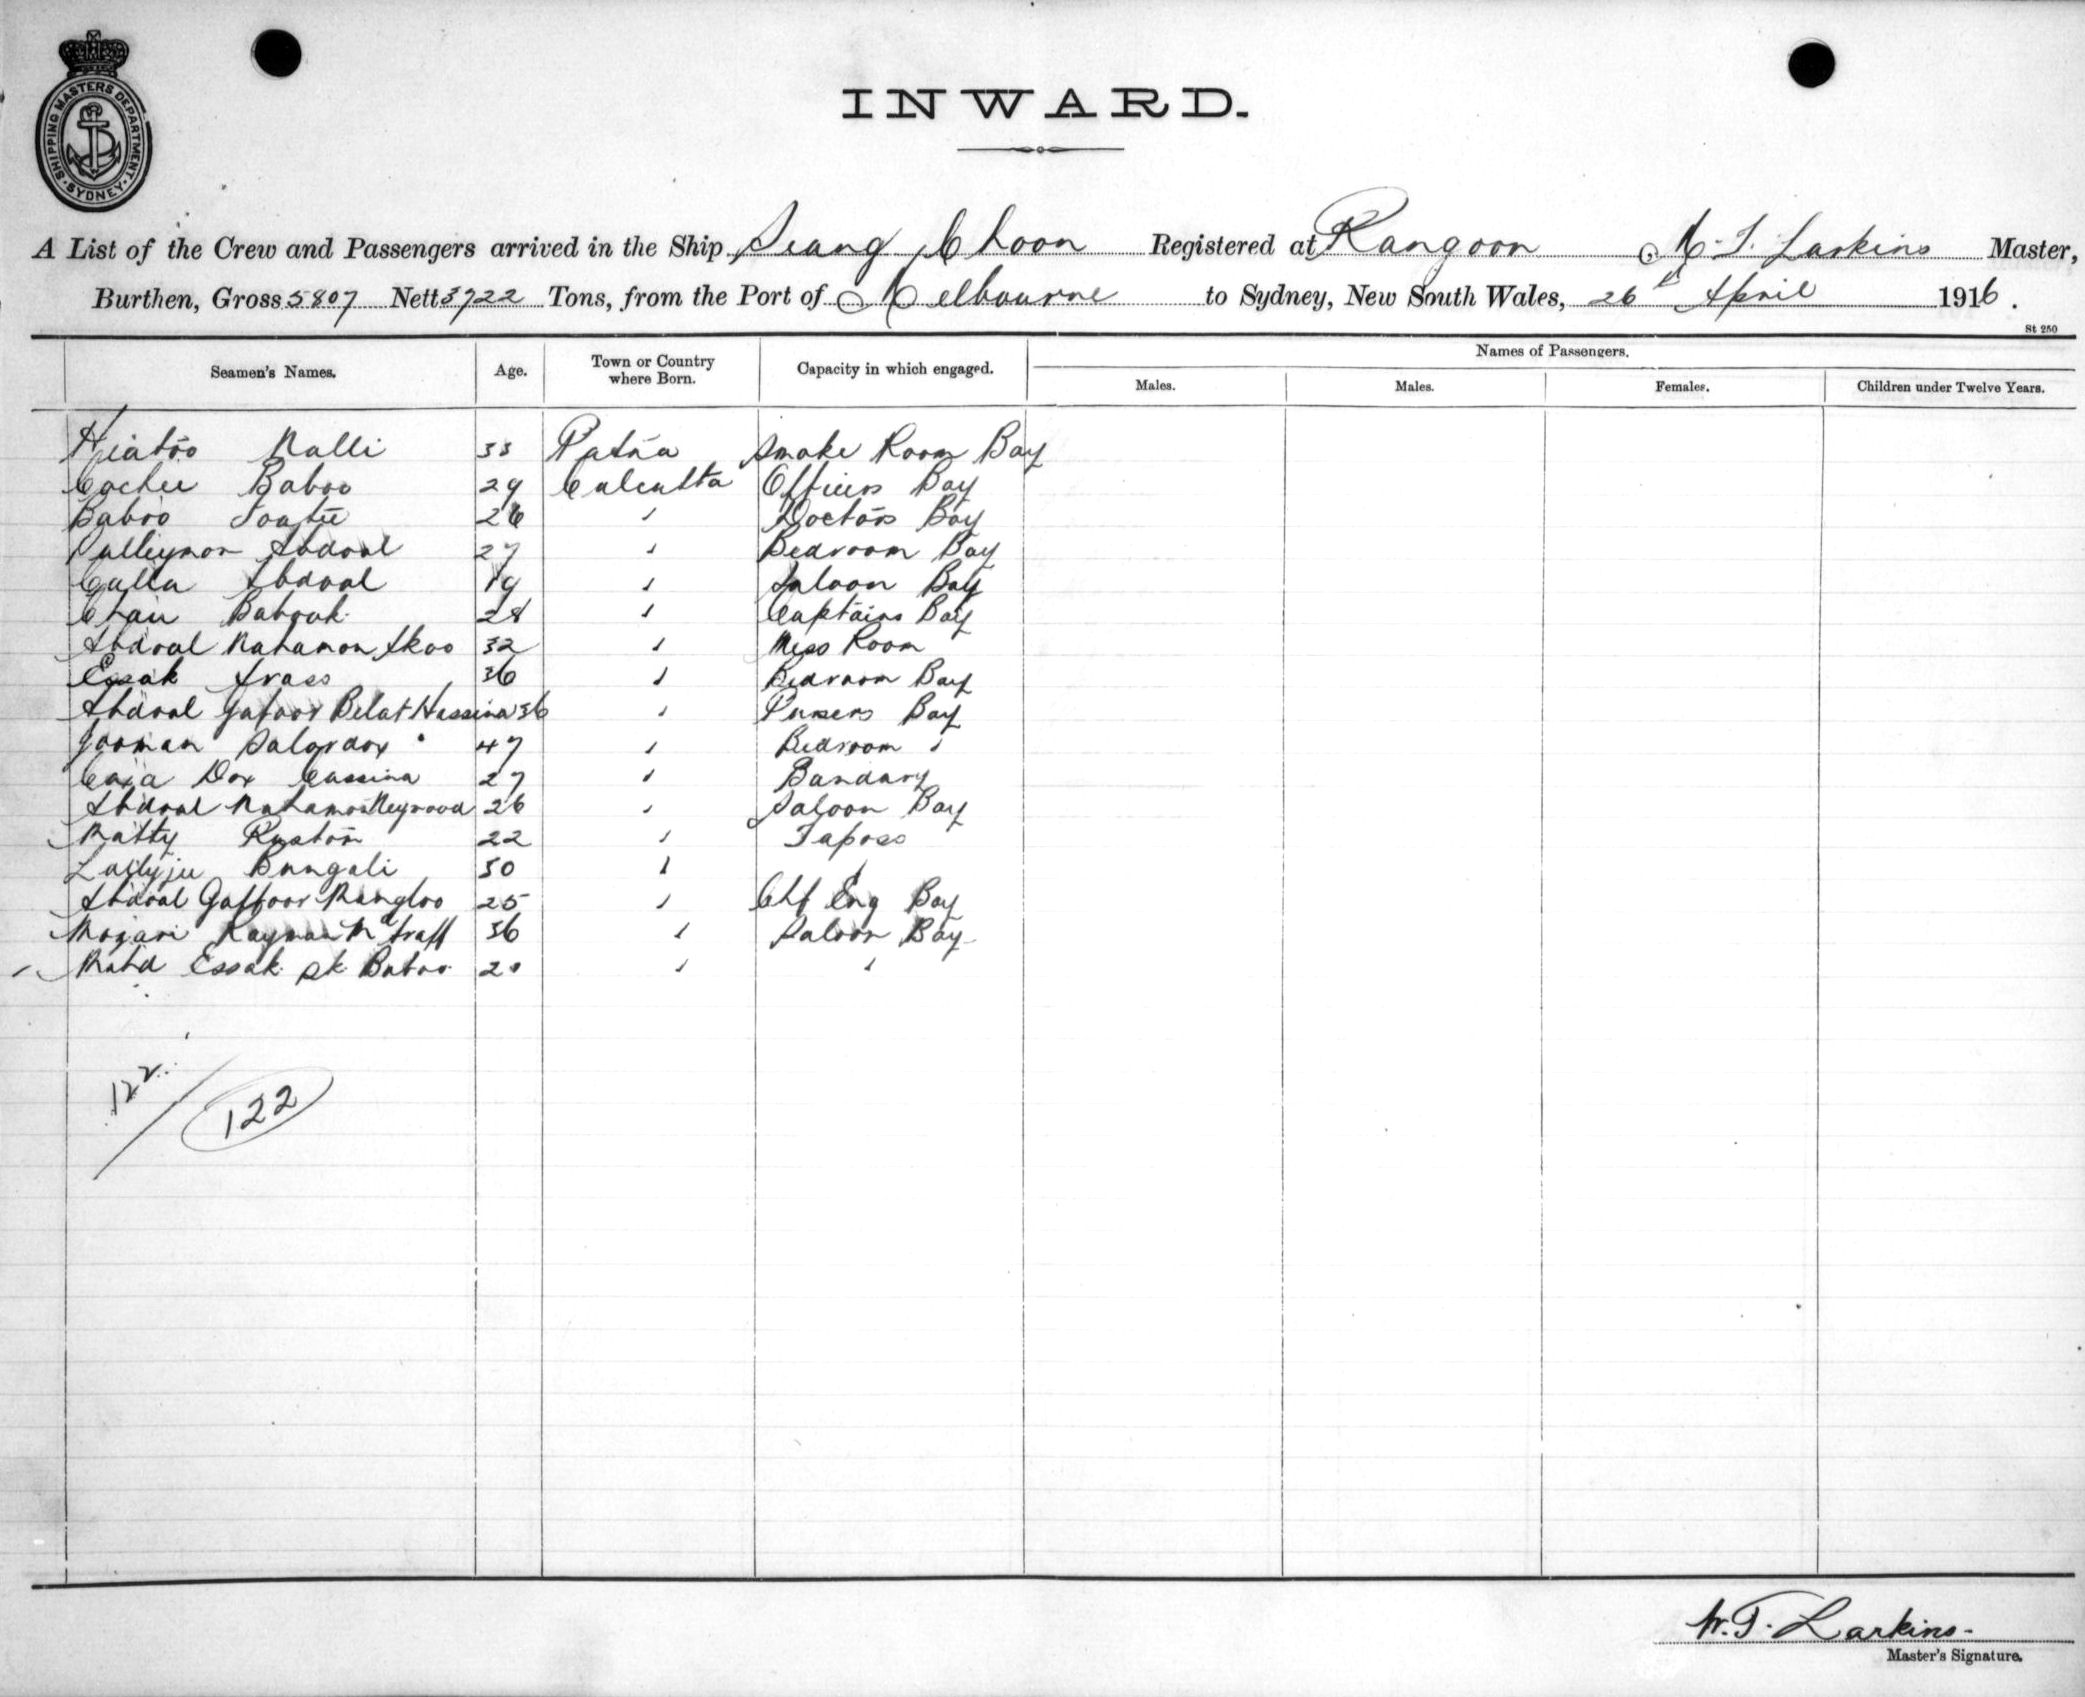 SHIPPING MASTERS DEPARTMENT. SYDNEY
INWARD.
A List of the Crew and Passengers arrived in the Ship Seang Choon Registered at Rangoon Larkins Master,
Burthen, Gross 5807 Nett 3722 Tons, from the Port of Melbourne to Sydney, New South Wales, 26th April 1916.
St 250
Seamen's Names. Age. Town or Country where Born. Capacity in which engaged. Names of Passengers.
Males. Males. Females. Children under Twelve Years.
Nalli 33 Patna Smoke Room Boy
Cochee Baboo 29 Calcutta Officers Boy
Baboo 26 " Doctors Boy
Sulleyman Abdool 27 " Bedroom Boy
Calla Abdool 19 " Saloon Boy
28 " Captains Boy
Abdool Rahamon Akoo 32 " Mess Room
Essak 36 " Bedroom Boy
Abdool Gafoor Belat Hassina 36 " Pursers Boy
Jooman 47 " Bedroom "
Cassina 27 " Bandary
Abdool 26 " Saloon Boy
22 " Tapass
Bungali 50 " "
Abdool Gaffoor 25 " Chf Eng Boy
36 " Saloon Boy
Mahd Essak Sk. Baboo 20 " "
122
122
W. T. Larkins
Master's Signature.